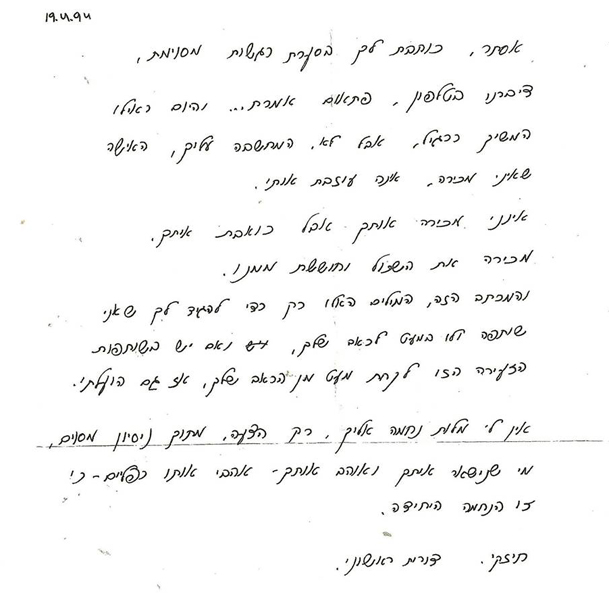 19.4.94
אסתר, כותבת לך בסערת רגשות מסוימת,
דיברנו בטלפון, פתאום אמרת... והיום כאילו
המשיך כרגיל, אבל לא. המחשבה עליך, האישה
שאיני מכירה, אינה עוזבת אותי.
אינני מכירה אותך אבל כואבת איתך.
מכירה את השכול וחוששת ממנו.
והמכתב הזה, המילים האלו רק כדי להגיד לך שאני
שותפה ולו במעט לכאב שלך, ואם יש בשותפות
הזעירה הזו לקחת מעט מן הכאב שלך, אז גם הועלתי.
אין לי מלות נחמה אליך, רק הצעה, מתוך ניסיון מסוים,
מי שנישאר איתך ואוהב אותך - אהבי אותו כפליים - כי
זו הנחמה היחידה.
חיזקי. דורית ראשוני.